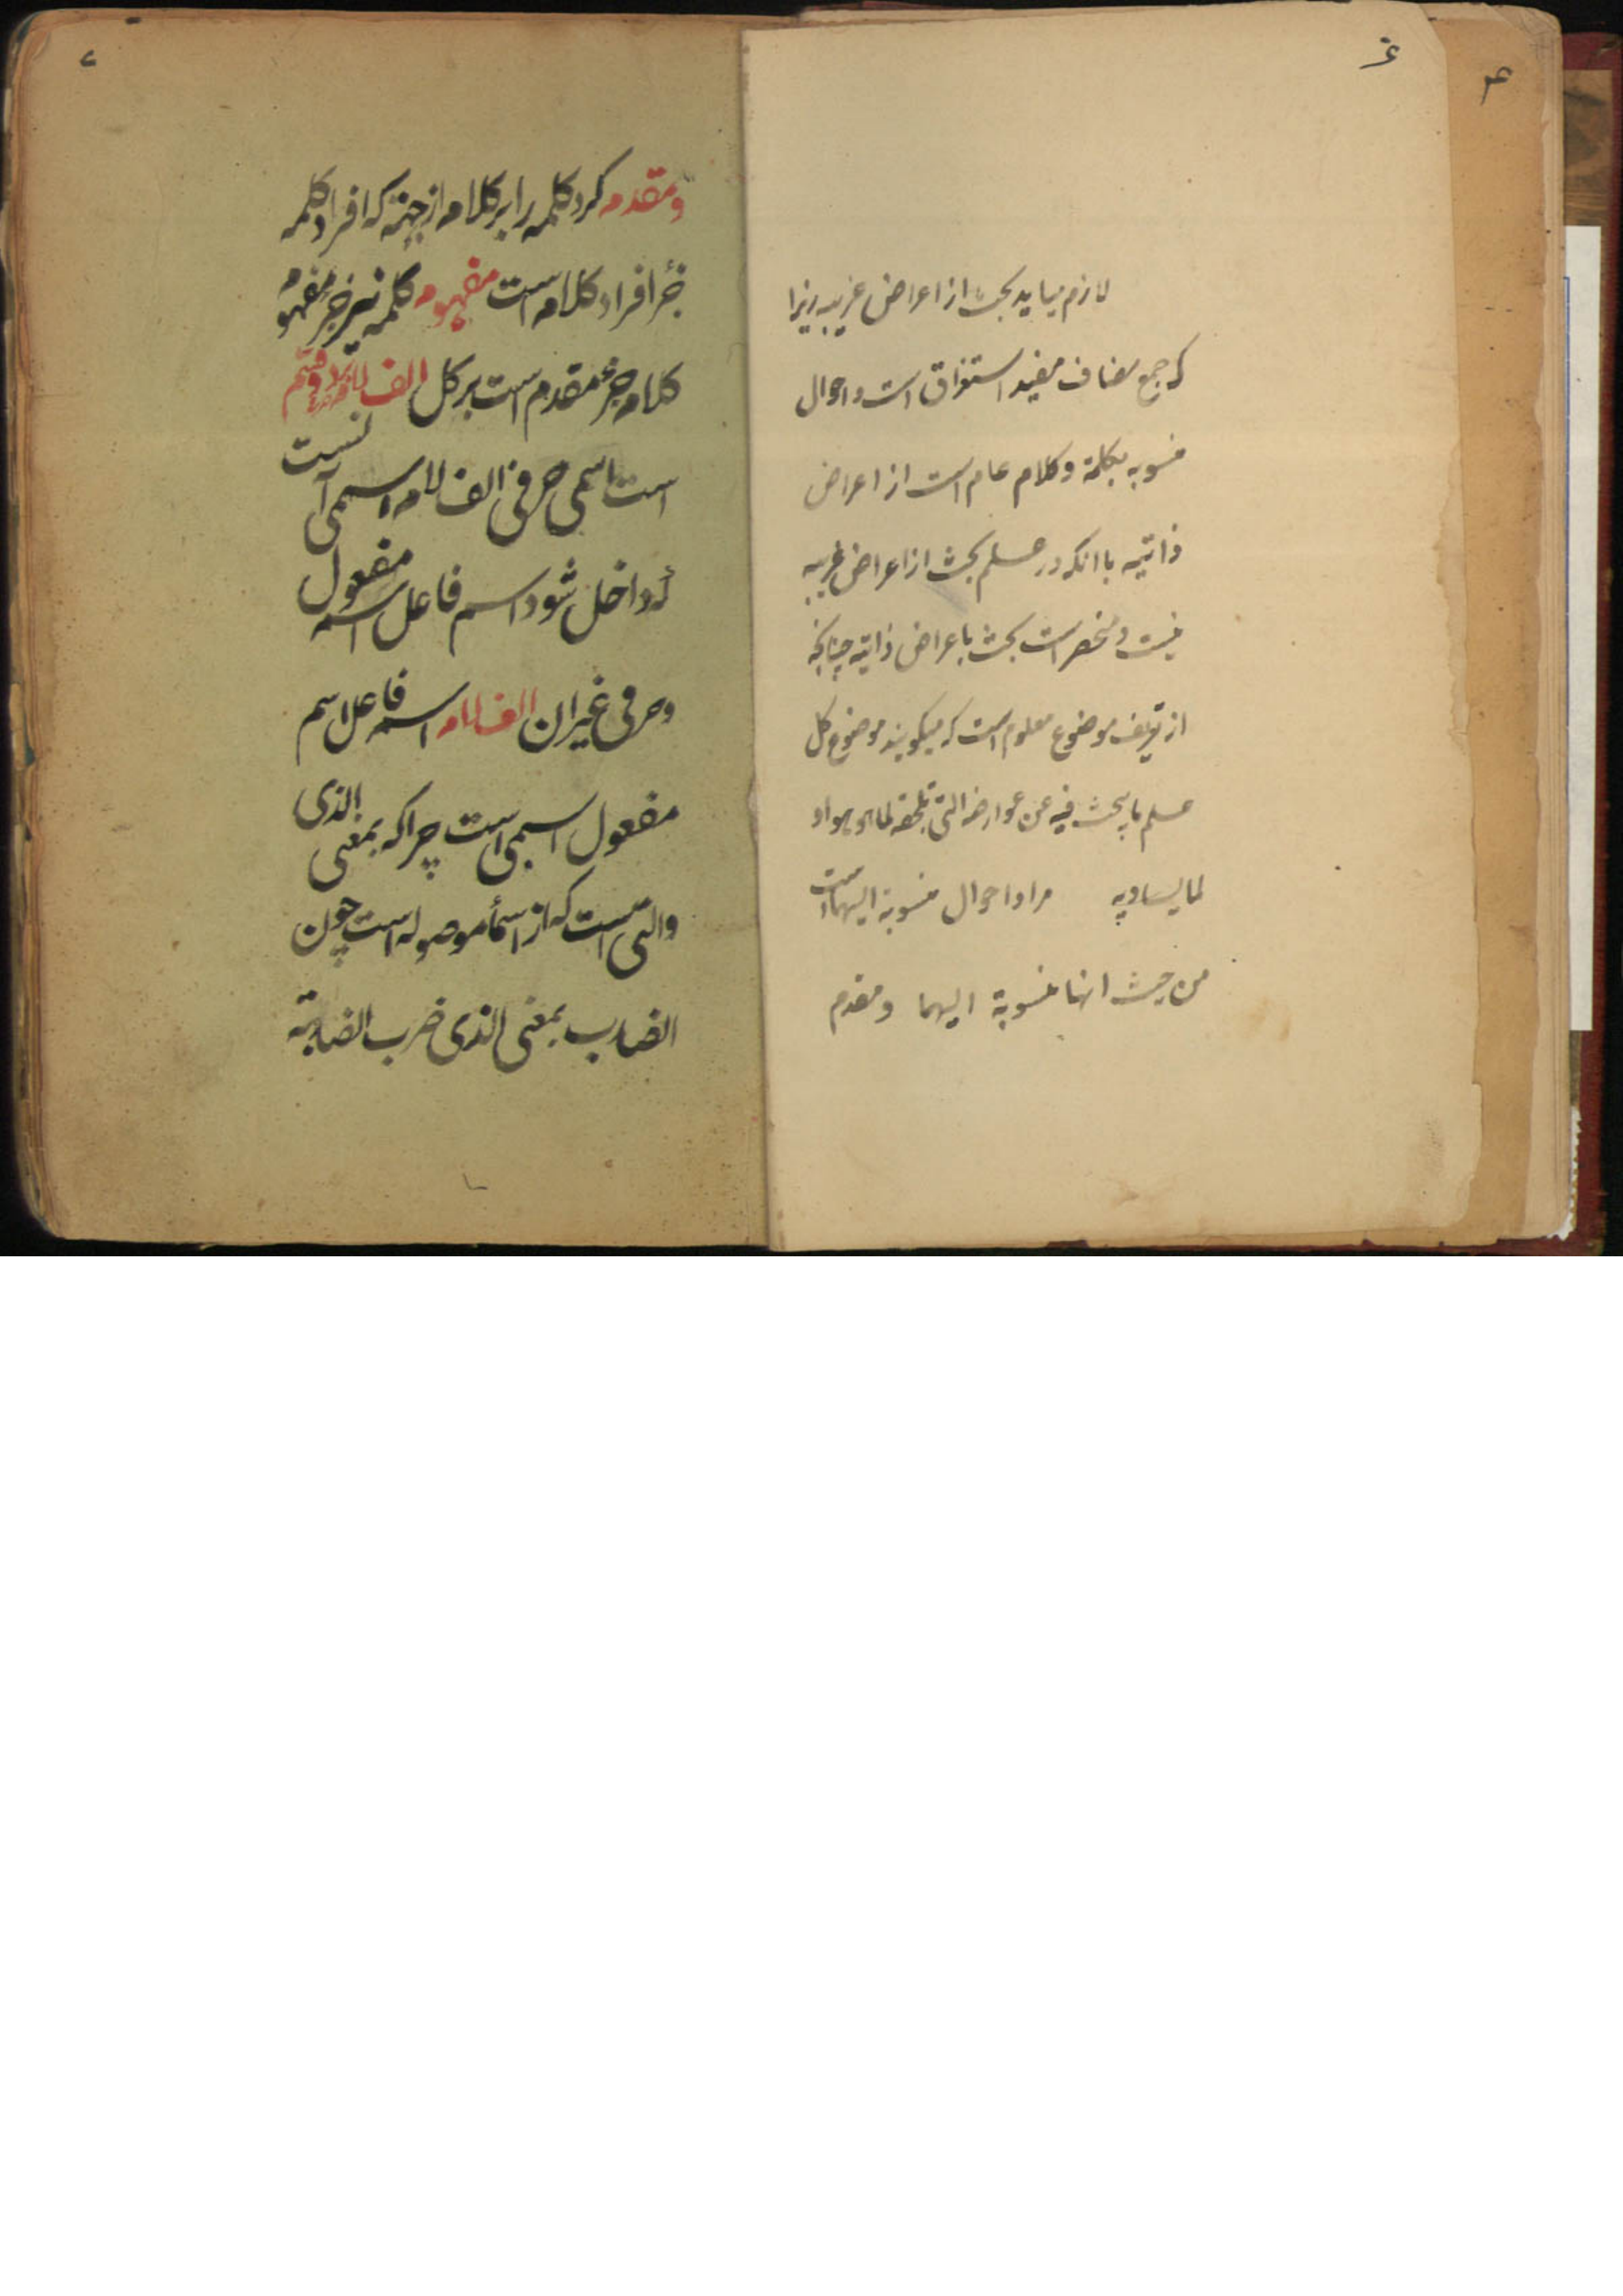 ۴
۶
لازم میاید بحث از اعراض غریبه زیرا
که جمع مضاف مفید استغراق است و احوال
منسوبه بکلمة و کلام عام است از اعراض
ذاتیه با انکه در علم بحث از اعراض غریبه
نیست و منحصر است بحث باعراض ذاتیه چنانچه
از تعریف موضوع معلوم است که میکویند موضوع کل
علم ما یبحث فیه عن عوارضه التی تلحقه لما هو هو او
لما یساویه مراد احوال منسوبة الیهما است
من حیث انها منسوبة الیهما و مقدم
۷
و مقدم کرد کلمه را بر کلام از جهته که افراد کلمه
جزٔ افراد کلام است مفهوم کلمه نیز جزٔ مفهوم
کلام جزٔ مقدم است بر کل الف لام بر دو قسم
است اسمی حرفی الف لام اسمی آنست
که داخل شود اسم فاعل اسم مفعول
و حرفی غیر ان الف لام اسم فاعل اسم
مفعول اسمی است چرا که بمعنی الذی
والتی است که از اسمأ موصوله است چون
الضارب بمعنی الذی ضرب الضاربة